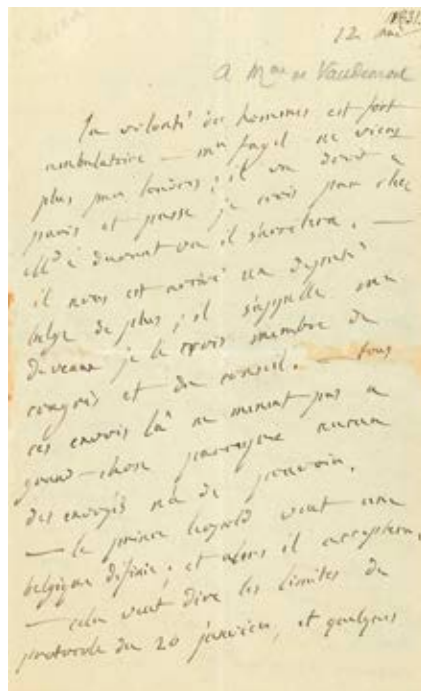 1831
12 mai
A Mme de Vaudemont
la volonté des hommes est fort
ambulatoire — mr fagel ne viens
plus pour londres ; il va droit a
paris et passe je crois par chez
il nous est arrivé un deputé
belge de plus ; il s'appelle mr
devaux je le crois membre du
congrès et du conseil. — tous
ces envois là ne menent pas a
grand-chose parceque aucun
des envoyés n'a de pouvoirs.
— le prince leopold veut une
belgique definie ; et alors il acceptera.
— cela veut dire les limites du
protocole du 20 janvier, et quelques